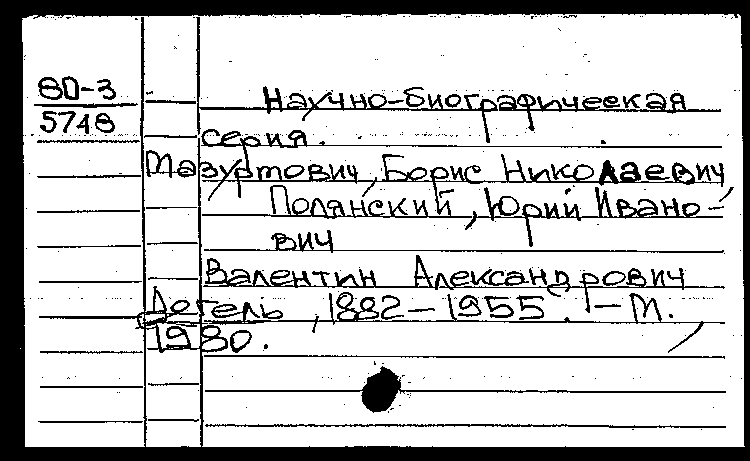 80-3
5748
Научно-биографическая
серия.
Мазуртович, Борис Николаевич,
Полянский, Юрий Ивано-
вич
Валентин Александрович
Догель, 1882-1955. - М.,
1980.